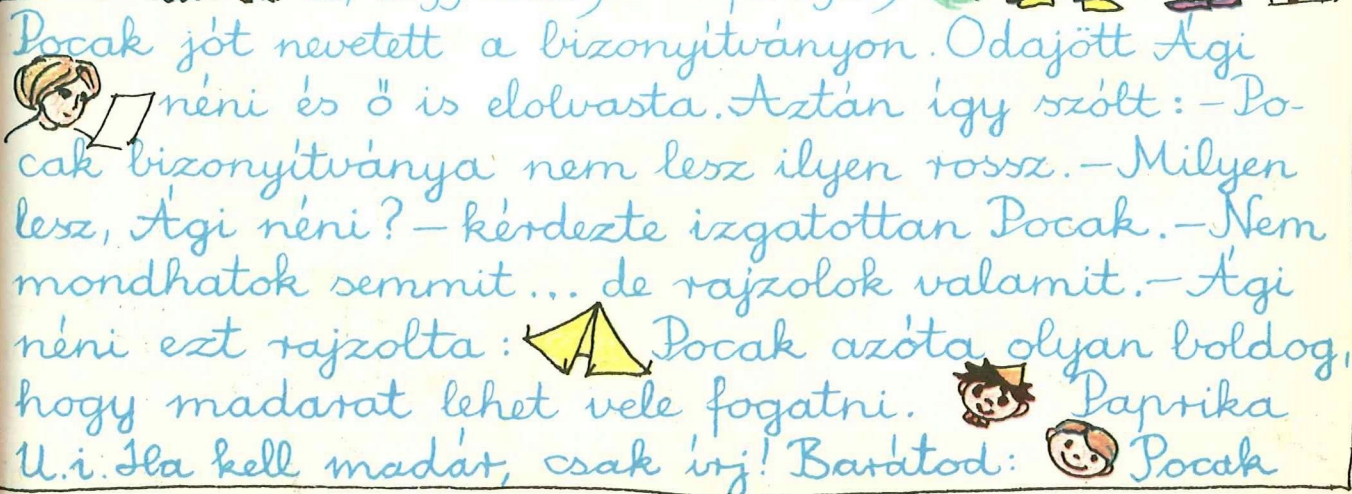 Pocak jót nevetett a bizonyítványon. Odajött Ági
néni és ő is elolvasta. Aztán így szólt: – Po-
cak bizonyítványa nem lesz ilyen rossz. – Milyen
lesz, Ági néni? – kérdezte izgatottan Pocak. – Nem
mondhatok semmit... de rajzolok valamit. – Ági
néni ezt rajzolta: Pocak azóta olyan boldog,
hogy madarat lehet vele fogatni. Paprika
U.i. Ha kell madár, csak írj! Barátod: Pocak